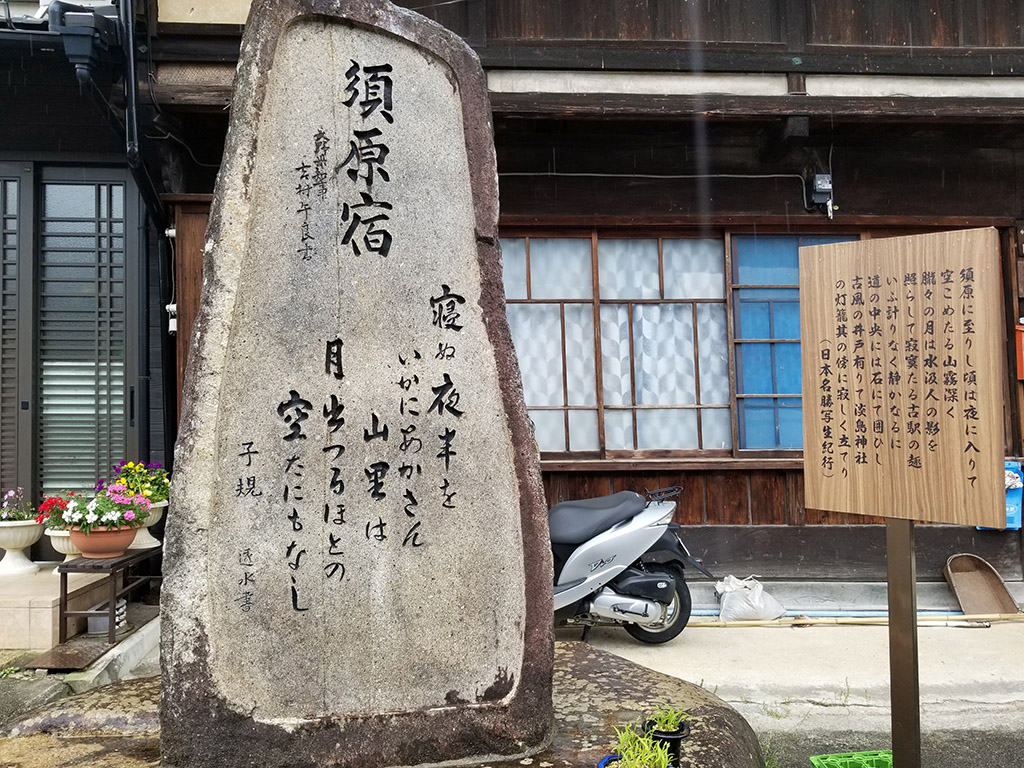 須原宿
長野県知事
吉村午良書
寝ぬ夜半を
いかにあかさん
山里は
月出つるほとの
空たにもなし
子規
透水書
須原に至りし頃は夜に入りて
空こめたる山霧深く
朧々の月は水汲人の影を
照らして寂寞たる古駅の趣
いふ計りなく静かなるに
道の中央には石にて囲ひし
古風の井戸有りて淡島神社
の灯籠其の傍に寂しく立てり
(日本名勝写生紀行)